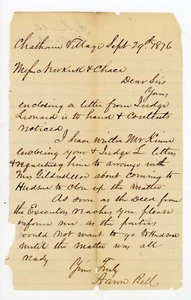 Chatham Village Sept 29th 1876
Mess Newkirk & Chace
Dear Sirs
Yours
enclosing a letter from Judge
Leonard is to hand & Contents
noticed
I have written Mr
enclosing your & Judge Ls letters
& requesting him to arrange with
Mrs about Coming to
Hudson to Close up the Matter
As soon as the Deed from
the Executors reaches you please
inform me as the parties
would not want to go to Hudson
until the matter was all
ready
Yours Truly
Bell